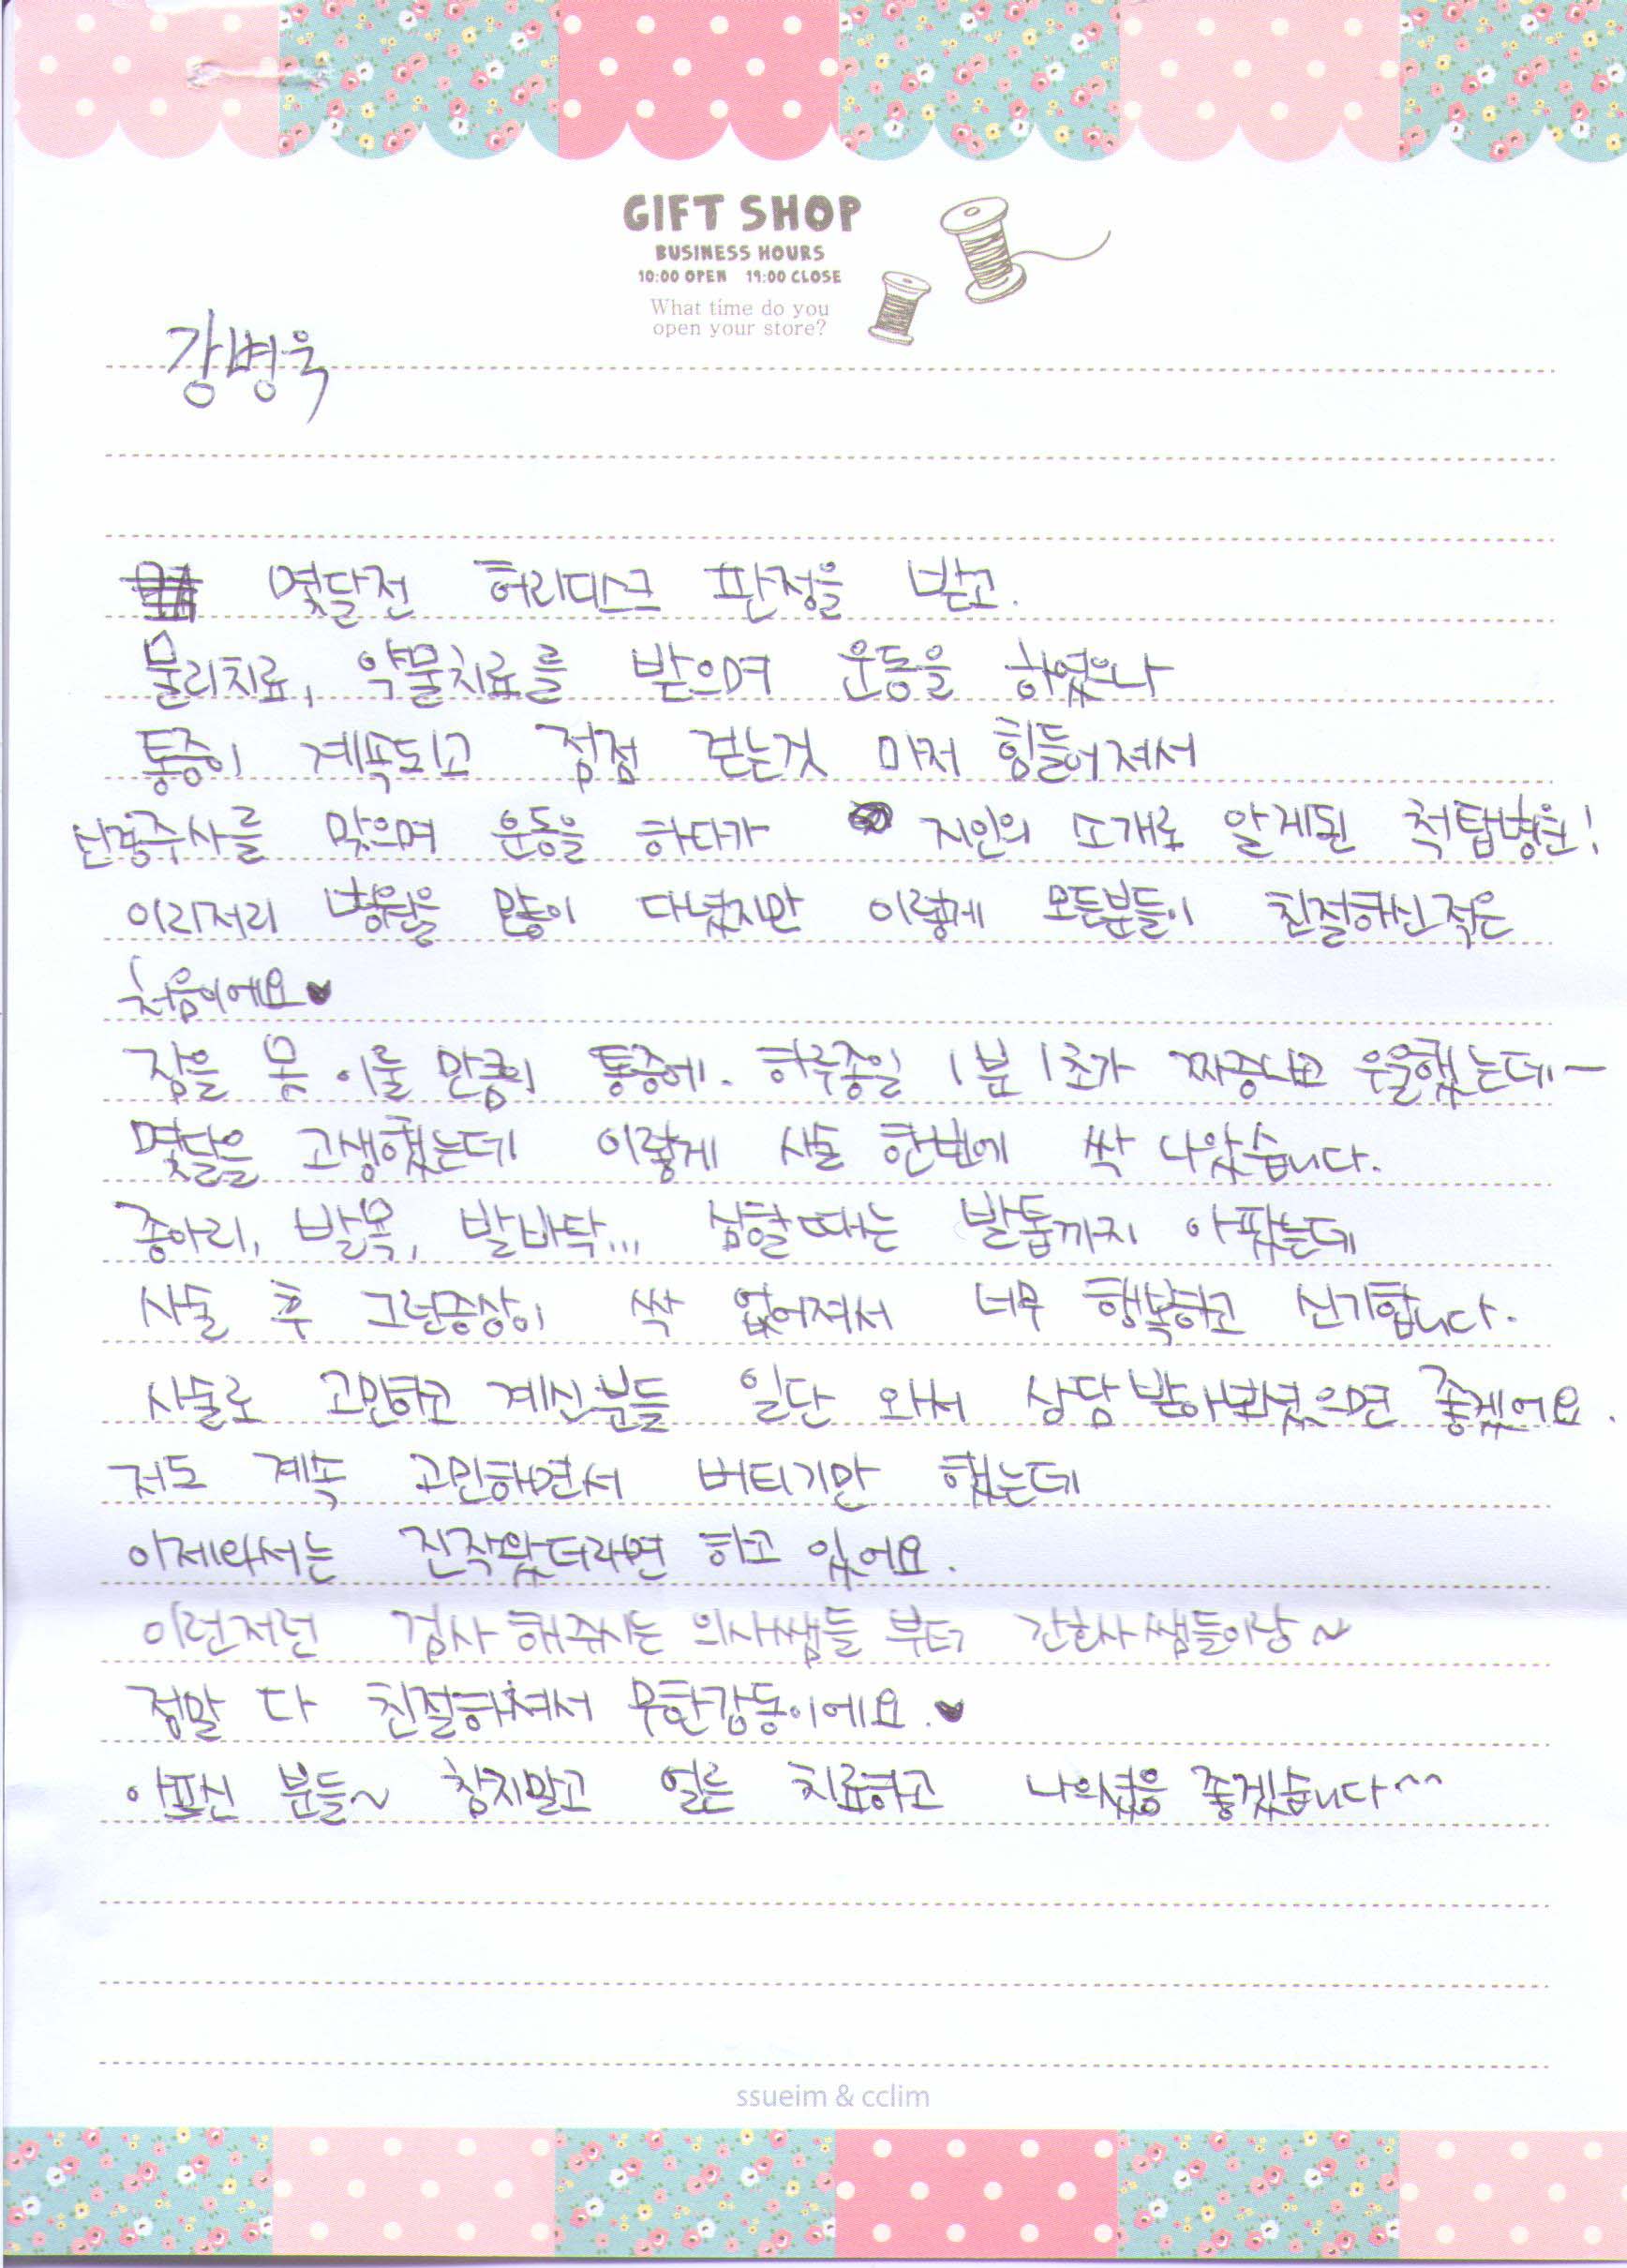 GIFT SHOP
BUSINESS HOURS
10:00 OPEN 19:00 CLOSE
What time do you
open your store?
강병욱
몇달전 허리디스크 판정을 받고.
물리치료, 약물치료를 받으며 운동을 하였으나
통증이 계속되고 점점 걷는것 마저 힘들어져서
신경주사를 맞으며 운동을 하다가 지인의 소개로 알게된 척탑병원!
이리저리 병원을 많이 다녔지만 이렇게 모든분들이 친절하신적은
처음이에요♥
잠을 못 이룰 만큼의 통증에. 하루종일 1분 1초가 짜증나고 우울했는데~
몇달을 고생했는데 이렇게 시술 한번에 싹 나았습니다.
종아리, 발목, 발바닥... 심할때는 발톱까지 아팠는데
시술 후 그런증상이 싹 없어져서 너무 행복하고 신기합니다.
시술로 고민하고 계신분들 일단 와서 상담 받아보셨으면 좋겠어요.
저도 계속 고민하면서 버티기만 했는데
이제와서는 진작왔더라면 하고 있어요.
이런저런 검사 해주시는 의사쌤들 부터 간호사 쌤들이랑~
정말 다 친절하셔서 무한감동이에요.♥
아프신 분들~ 참지말고 얼른 치료하고 나으셨음 좋겠습니다^^
ssueim & cclim